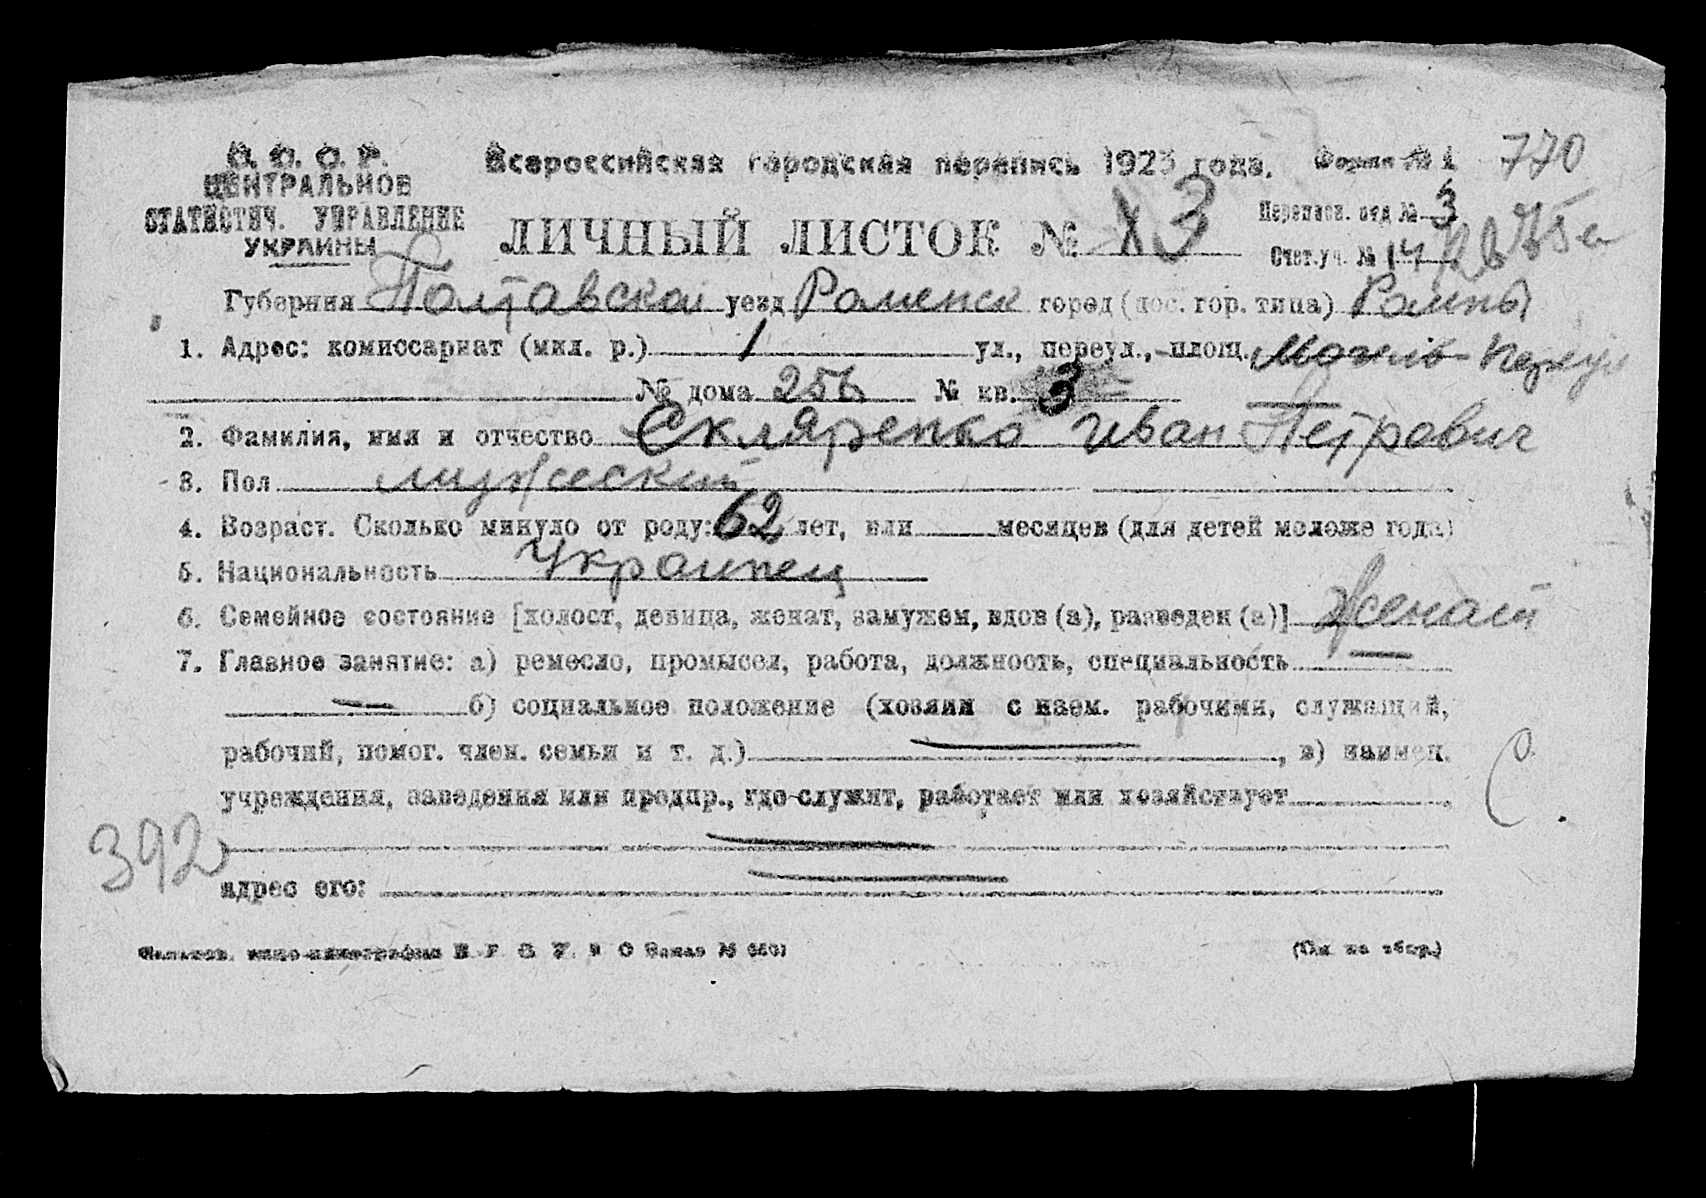 У. С. С. Р.
ЦЕНТРАЛЬНОЕ
СТАТИСТИЧ. УПРАВЛЕНИЕ
УКРАИНЫ
Всероссийская городская перепись 1923 года. Форма № 1 770
ЛИЧНЫЙ ЛИСТОК № 3
Переписн. отд № 3
Счет.уч. № 14
Губерния Полтавской уезд Роменск город (пос. гор. типа) Ромны
1. Адрес: комиссариат (мил. р.) 1 ул., переул., площ.
№ дома 25б № кв. 3
2. Фамилия, имя и отчество Скляренко Иван Петрович
3. Пол мужеский
4. Возраст. Сколько минуло от роду: 62 лет, или месяцев (для детей моложе года)
5. Национальность Украинец
6. Семейное состояние [холост, девица, женат, замужем, вдов (а), разведен (а)] Женат
7. Главное занятие: а) ремесло, промысел, работа, должность, специальность —
— б) социальное положение (хозяин с наем. рабочими, служащий,
рабочий, помог. член. семьи и т. д.) —, в) наимен.
учреждения, заведения или предпр., где служит, работает или хозяйствует
—
392
адрес его: —
(См на обор.)